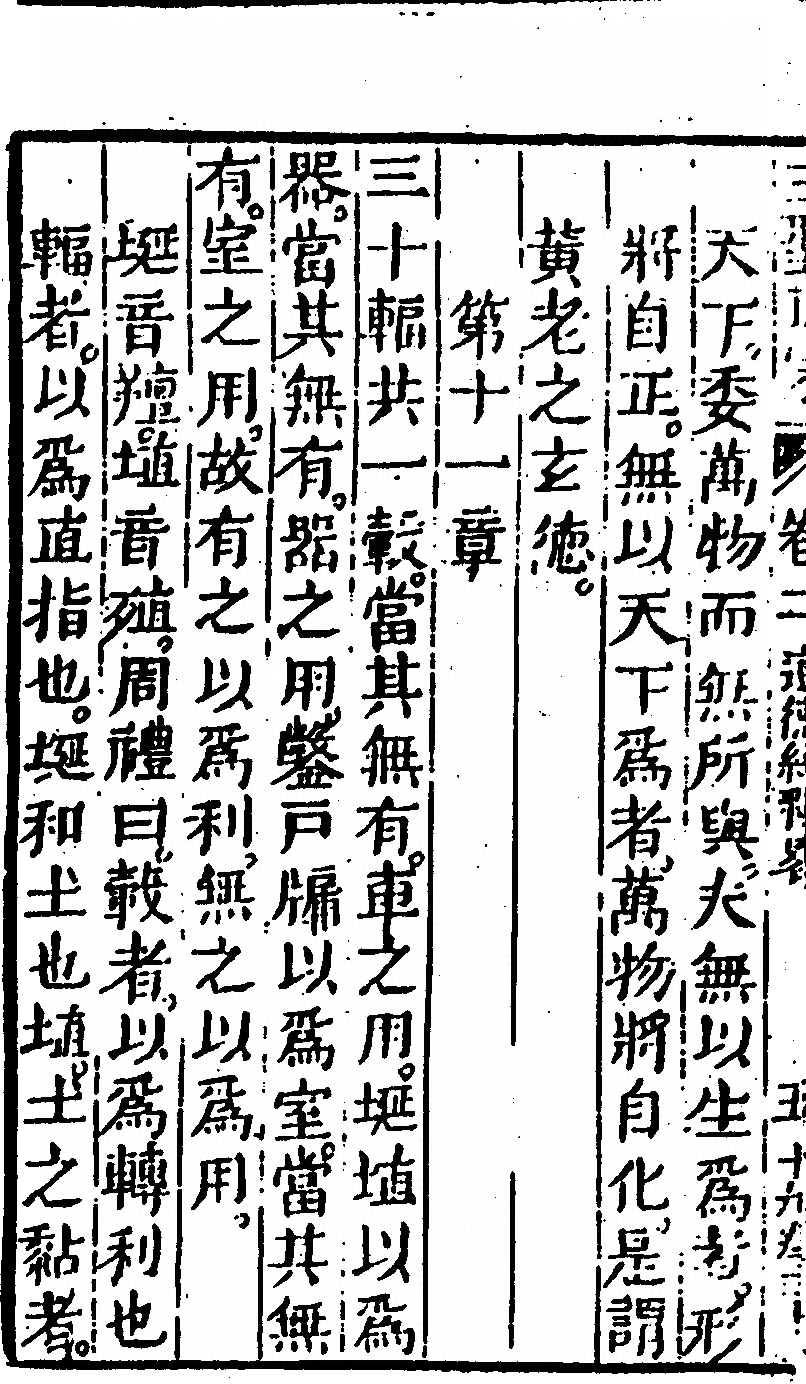 卷二 道德經 五十九
天下委萬物而無所與夫無以生爲者形
將自正無以天下爲者萬物將自化是謂
黃老之玄德
第十一章
三十輻共一轂當其無有車之用埏埴以爲
器當其無有器之用鑿戸牖以爲室當其無
有室之用故有之以爲利無之以爲用
埏音羶埴音殖周禮曰轂者以爲轉利也
輻者以爲直指也埏和土也埴土之黏者